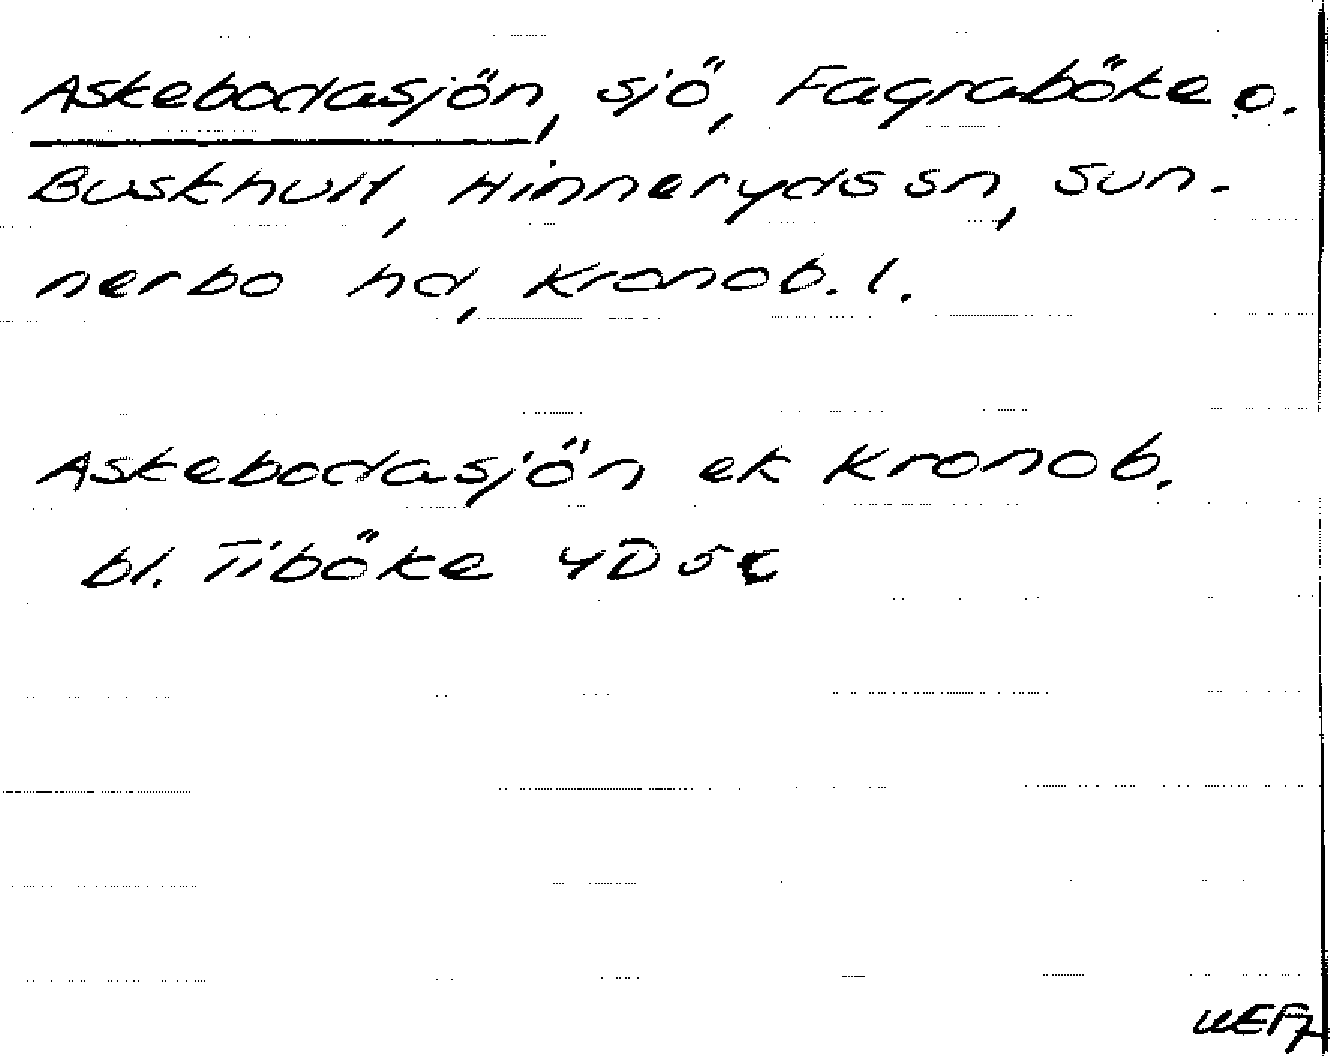 Askebodasjön, sjö, Fagraböke o.
Buskhult, Hinneryds sn, Sun-
nerbo hd, Kronob. l.
Askebodasjön ek Kronob.
bl. Tiböke 4D5c